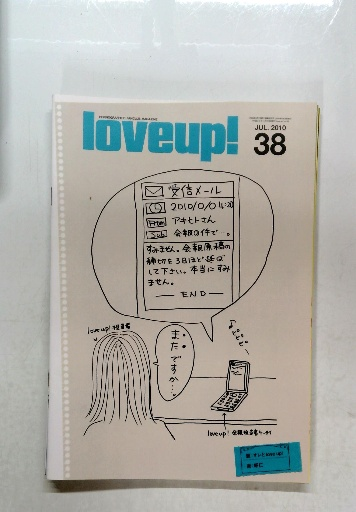 loveup!
JUL. 2010
38
受信メール
2010/0/0 11:20
From アキヒトさん
Sub 会報の件で。
すみません。会報原稿の
締切を3日ほど延ば
して下さい。本当にすみ
ません。
END
loveup! 担当者
またですか…。